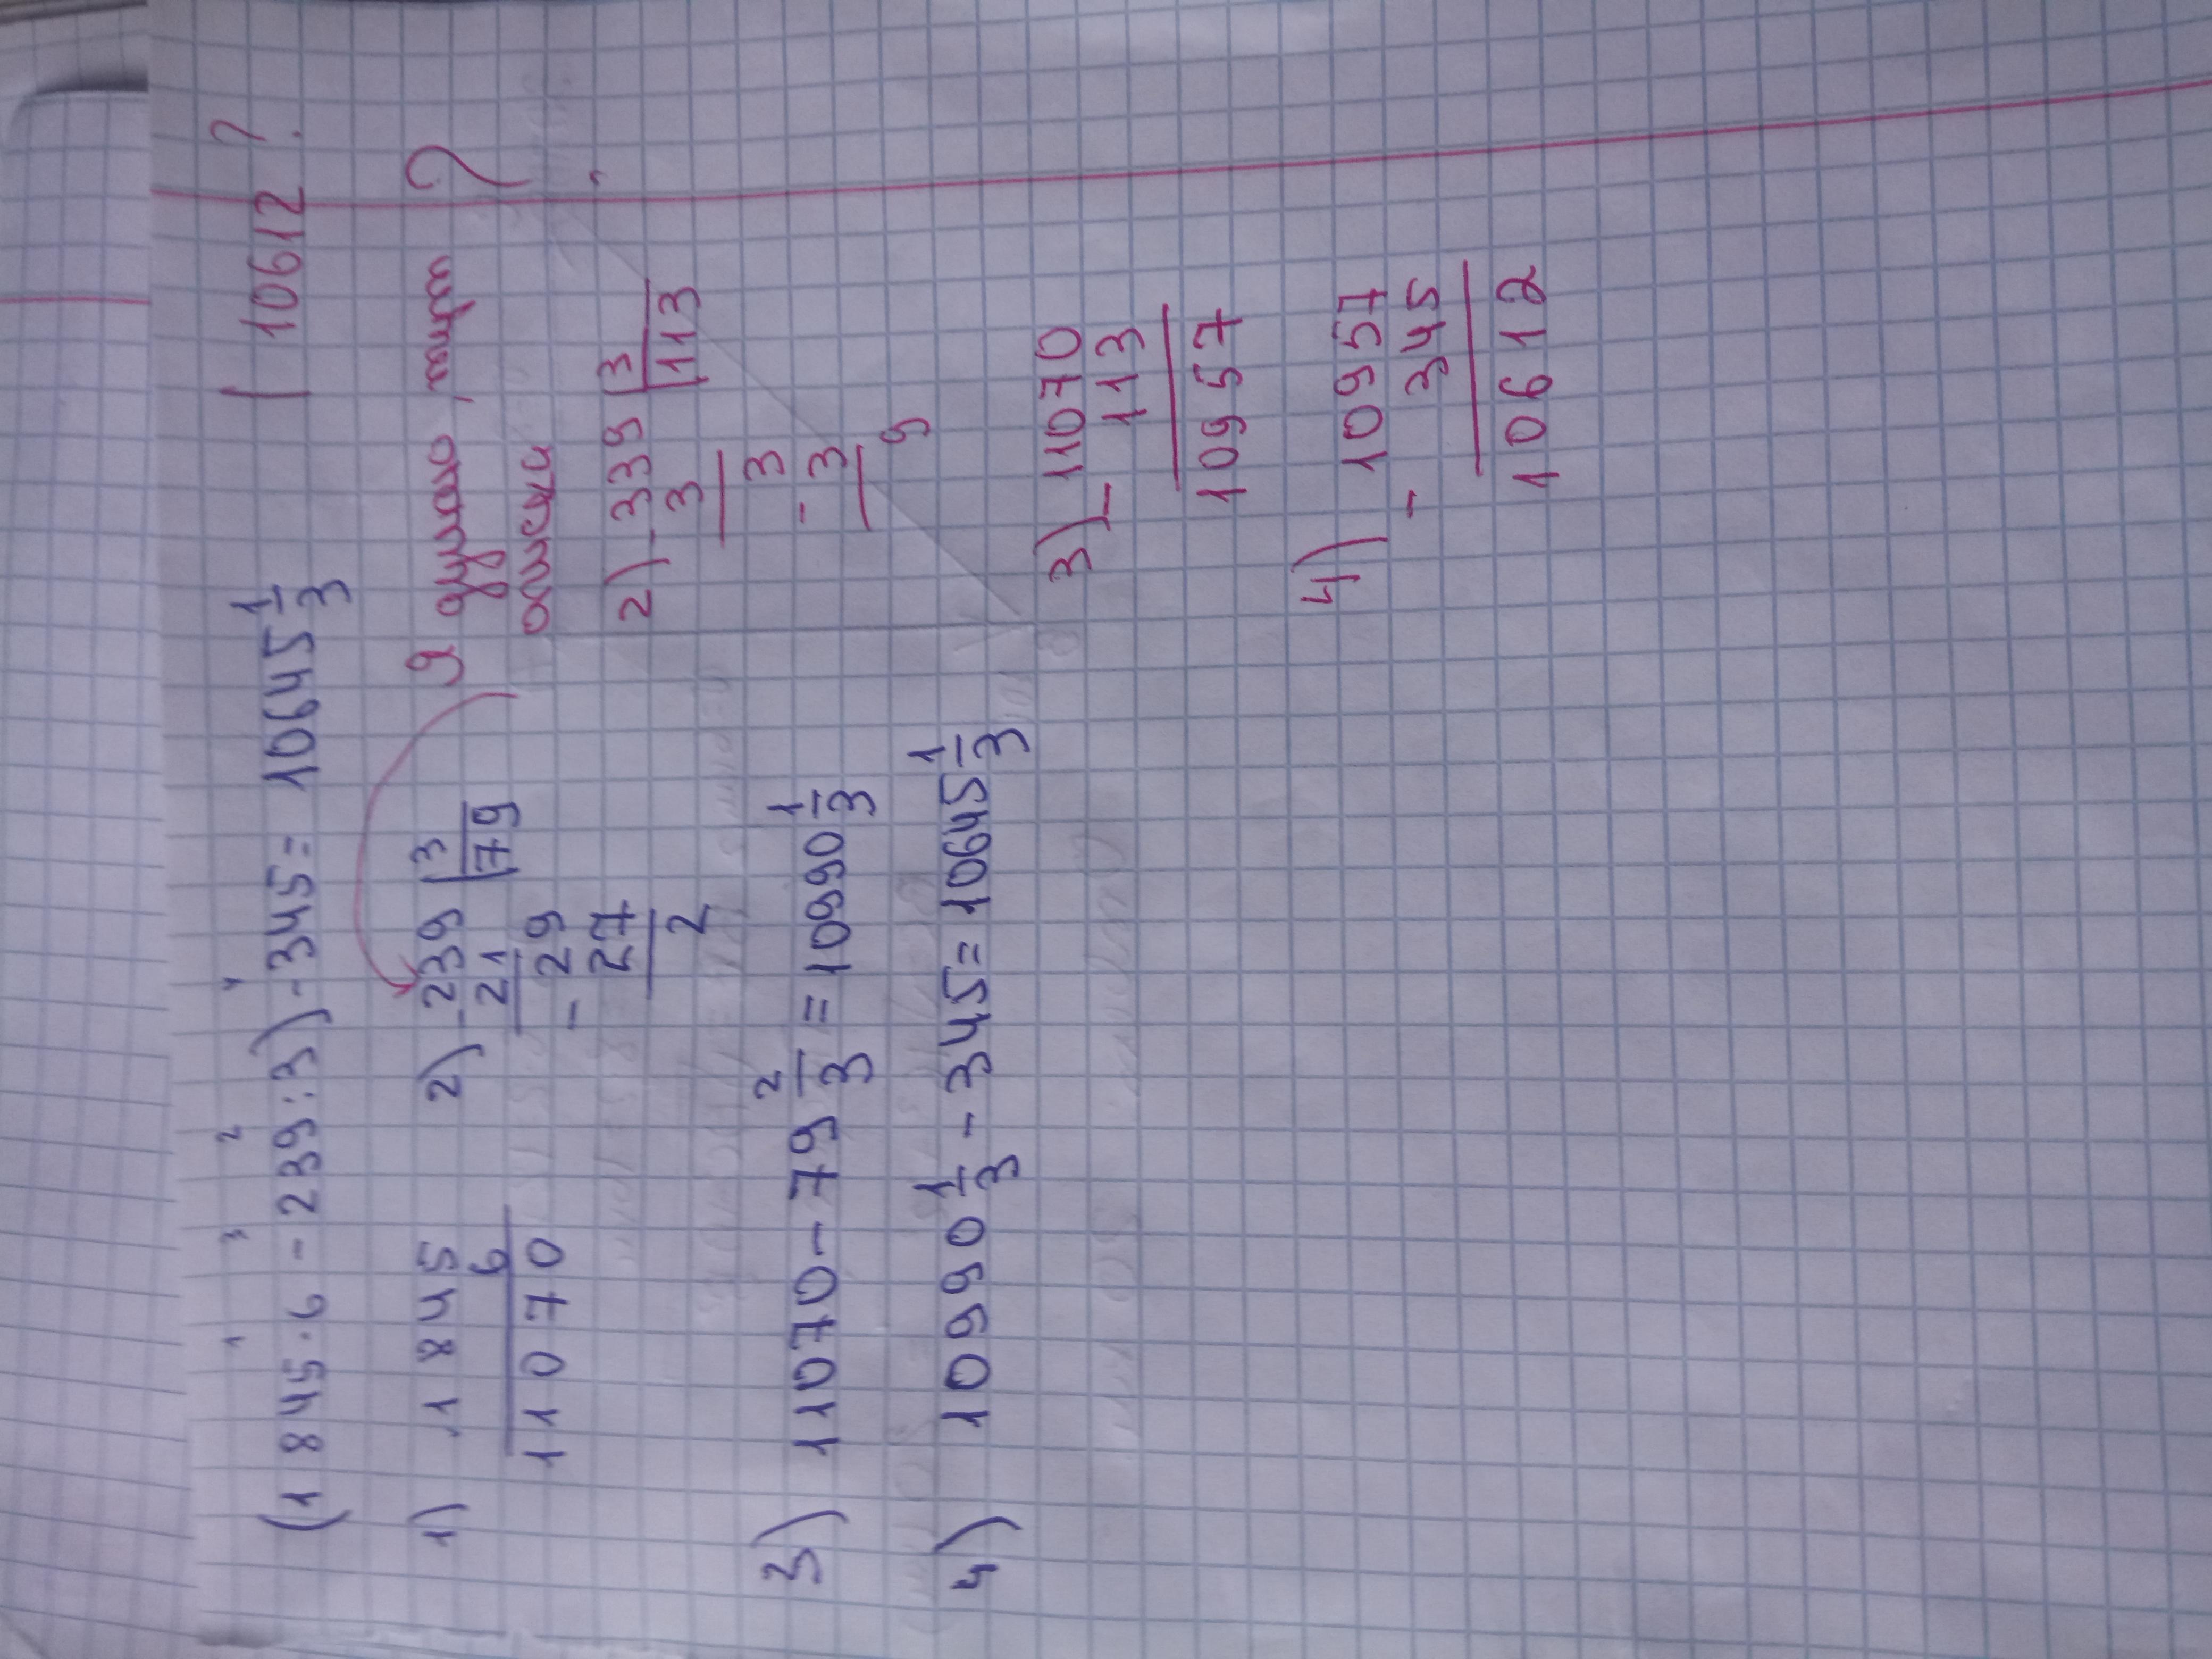 (1845·6 - 239:3) - 345 = 10645 1/3 | 10612 ?
1 3 2 4
1) 1845
6
11070
2) - 239 | 3
21 | 79
- 29
27
2
3) 11070 - 79 2/3 = 10990 1/3
4) 10990 1/3 - 345 = 10645 1/3
Я думаю, тут ?
описка
2) - 339 | 3
3 | 113
3
- 3
9
3) - 11070
113
10957
4) - 10957
345
10612